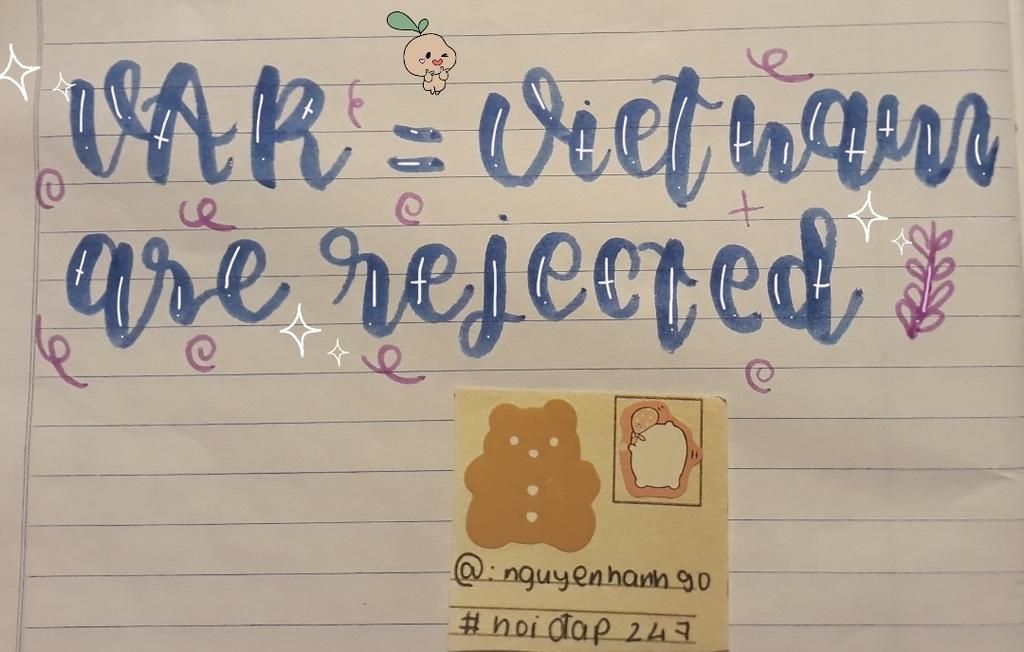 VAR = Vietnam
are rejected
@: nguyenhanh90
# hoidap 247